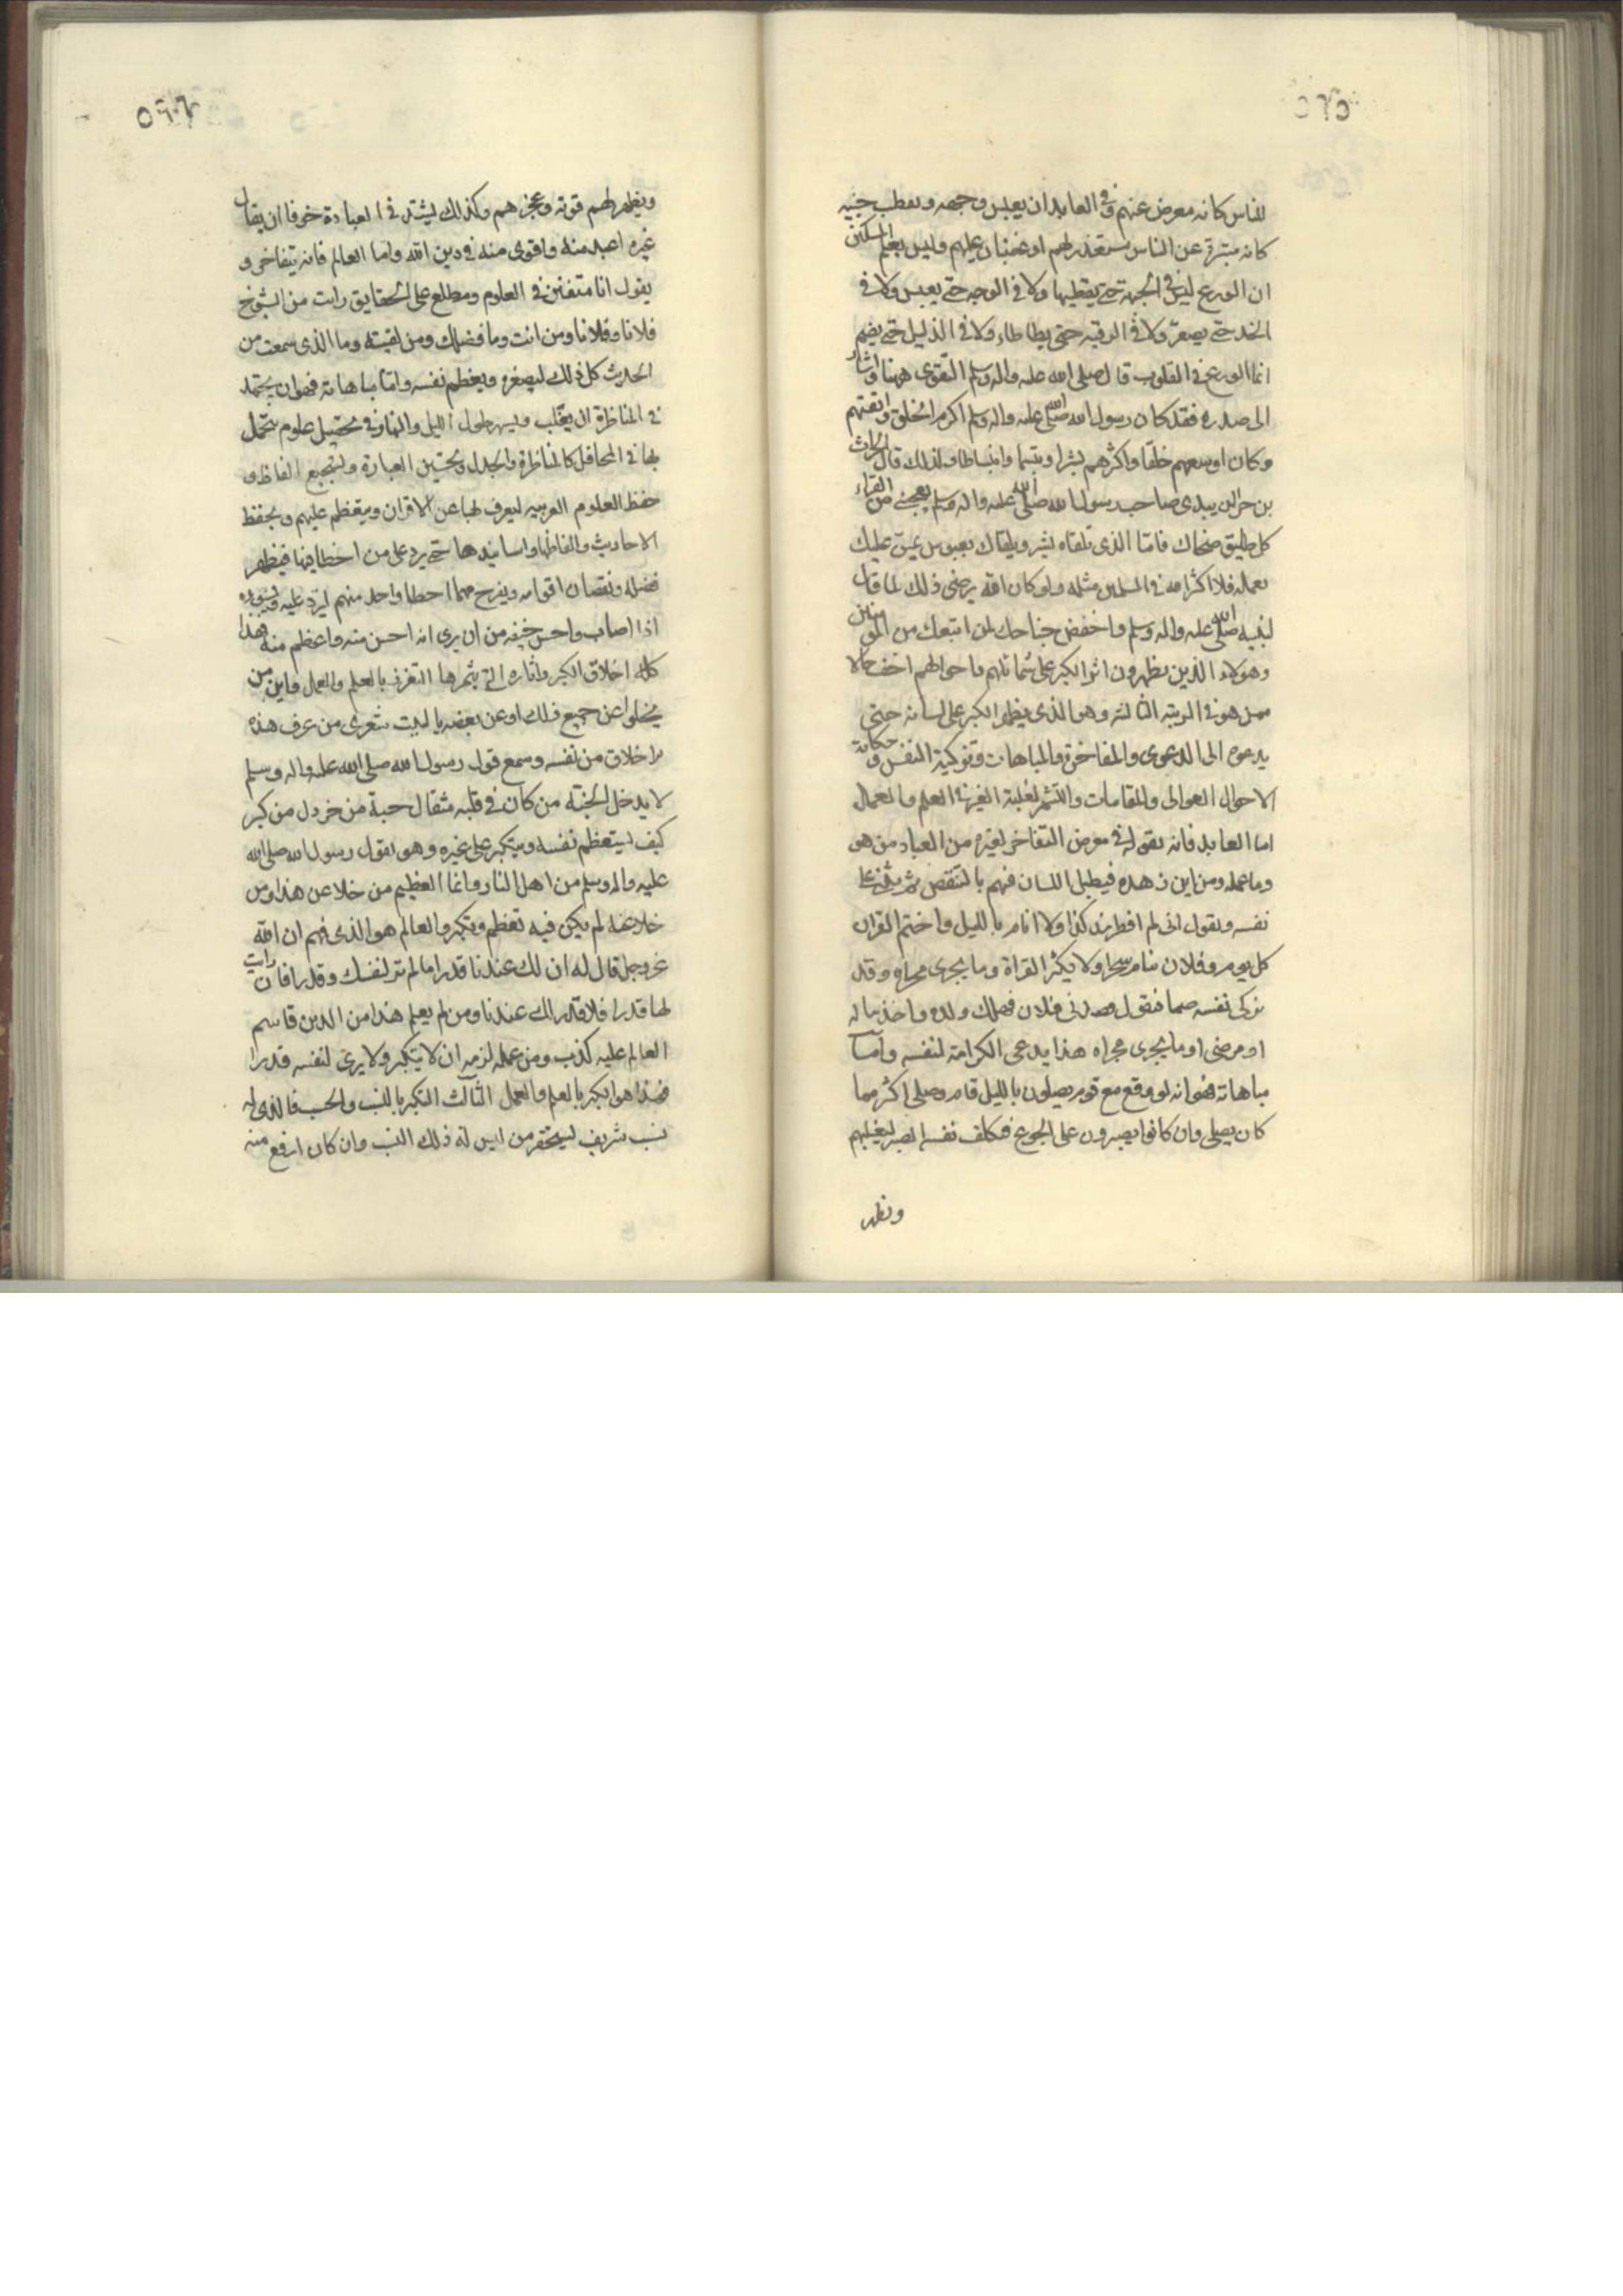 ٥٢٥
للناس كانه معرض عنهم وفي العابد ان يعبس وجهه ويقطب جبينه
كانه متنزه عن الناس مستقذر لهم او غضبان عليهم وليس يعلم المسكين
ان الورع ليس في الجبهة حتى يقطبها ولا في الوجه حتى يعبس ولا في
الخد حتى يصعر ولا في الرقبه حتى يطاطاء ولا في الذليل حتى يضم
انما الورع في القلوب قال صلى الله عليه واله وسلم التقوى ههنا واشار
الى صدره فقد كان رسول الله صلى الله عليه واله وسلم اكرم الخلق واتقيهم
وكان اوسعهم خلقا واكثرهم بشرا وتبسما وانبساطا ولذلك قال الحارث
بن صاحب رسول الله صلى الله عليه واله وسلم يعجبني من القراء
كل طليق ضحاك فاما الذي تلقاه ببشر ويلقاك بعبوس يمن عليك
بعمله فلا اكثر الله في المسلمين مثله ولو كان الله يرضى ذلك لما قال
لنبيه صلى الله عليه واله وسلم واخفض جناحك لمن اتبعك من المؤمنين
وهؤلاء الذين يظهرون اثر الكبر على شمائلهم واحوالهم اخف حالا
ممن هو في الرتبة الثالثه وهو الذي يظهر الكبر على لسانه حتى
يدعوه الى الدعوى والمفاخرة والمباهات وتزكية النفس وحكاية
الاحوال العوالى والمقامات والتشمر لغلبة الغير في العلم والعمل
اما العابد فانه يقول في معرض التفاخر لغيره من العباد من هو
وما عمله ومن اين زهده فيطيل اللسان فيهم بالتنقص ثم يثنى على
نفسه ويقول انى لم افطر منذ كذا ولا انام بالليل واختم القران
كل يوم وفلان ينام سحرا ولا يكثر القراة وما يجرى مجراه وقد
يزكى نفسه ضمنا فيقول قصدنى فلان فهلك ولده واخذ ماله
او مرض او ما يجرى مجراه هذا يدعى الكرامة لنفسه واما
مباهاته فهو انه لو وقع مع قوم يصلون بالليل قام وصلى اكثر مما
كان يصلى وان كانوا يصبرون على الجوع فيكلف نفسه الصبر ليغلبهم
ويظهر
ويظهر لهم قوته وعجزهم وكذلك يشتد في العبادة خوفا ان يقال
غيره اعبد منه واقوى منه في دين الله واما العالم فانه يتفاخر و
يقول انا متفنن في العلوم ومطلع على الحقايق رايت من الشيوخ
فلانا وفلانا ومن انت وما فضلك ومن لقيته وما الذي سمعت من
الحديث كل ذلك ليصغره ويعظم نفسه واما مباهاته فهو ان يجتهد
في المناظرة ان يغلب ويسهر طول الليل والنهار في تحصيل علوم يتجمل
بها في المحافل كالمناظرة والجدل وتحسين العبارة وتسجيع الفاظ و
حفظ العلوم الغريبه ليغرب بها عن الاقران ويتعظم عليهم ويحفظ
الاحاديث والفاظها واسانيدها حتى يرد على من اخطا فيها فيظهر
فضله ونقصان اقرانه ويفرح مهما اخطا واحد منهم ليرد عليه ويسوءه
اذا اصاب واحسن خيفه من ان يرى انه احسن منه واعظم منه فهذا
كله اخلاق الكبر واثاره التي يثمرها التعزز بالعلم والعمل واين من
يخلوا عن جميع ذلك او عن بعضه ياليت شعرى من عرف هذه
الاخلاق من نفسه وسمع قول رسول الله صلى الله عليه واله وسلم
لا يدخل الجنة من كان في قلبه مثقال حبة من خردل من كبر
كيف يستعظم نفسه ويتكبر على غيره وهو بقول رسول الله صلى الله
عليه واله وسلم من اهل النار وانما العظيم من خلا عن هذا ومن
خلا عنه لم يكن فيه تعظم وتكبر والعالم هو الذي فهم ان الله
عز وجل قال له ان لك عندنا قدرا ما لم تر لنفسك وقدرا فان رايت
لها قدرا فلا قدر لك عندنا ومن لم يعلم هذا من الدين فاسم
العالم عليه كذب ومن علمه لزمه ان لا يتكبر ولا يرى لنفسه قدرا
فهذا هو الكبر بالعلم والعمل الثالث التكبر بالنسب والحسب فالذي له
نسب شريف يستحقر من ليس له ذلك النسب وان كان ارفع منه